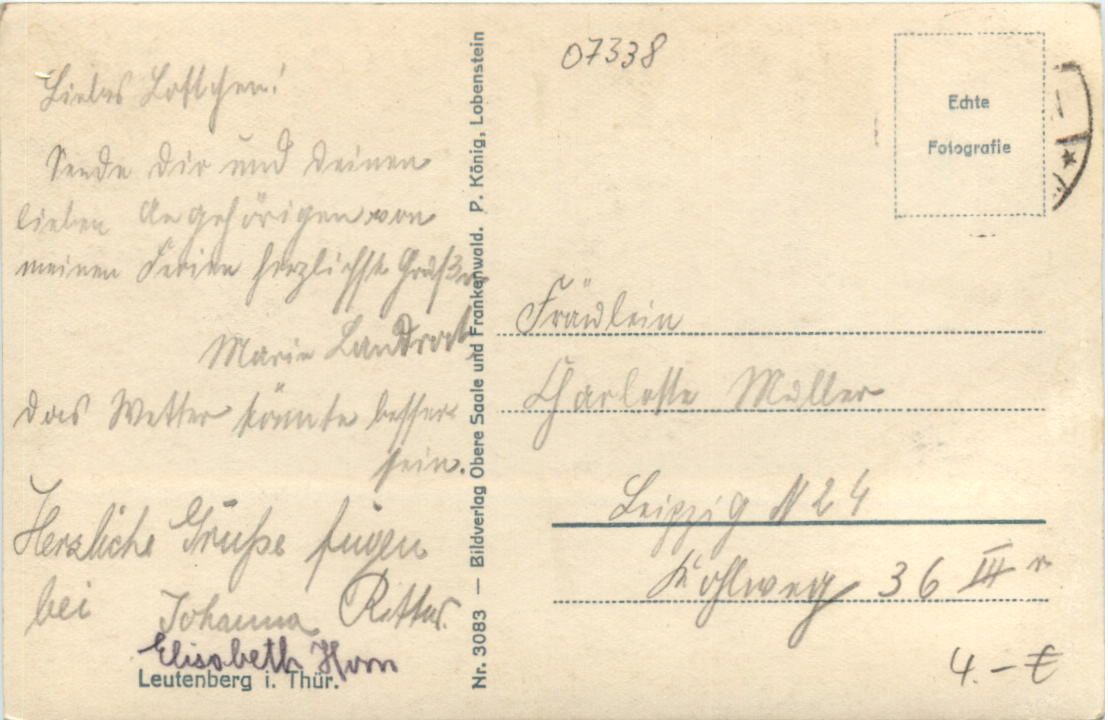 Liebes Lottchen!
Sende Dir und Deinen
lieben Angehörigen von
meinen Ferien herzlichste Grüße
Marie Landrock
Das Wetter könnte besser
sein.
Herzliche Grüße fügen
bei Johanna Ritter.
Elisabeth Horn
Leutenberg i. Thür.
Nr. 3083 — Bildverlag Obere Saale und Frankenwald. P. König, Lobenstein
07338
Echte
Fotografie
Fräulein
Charlotte Müller
Leipzig N 24
Kohlweg 36 III r
4.- €